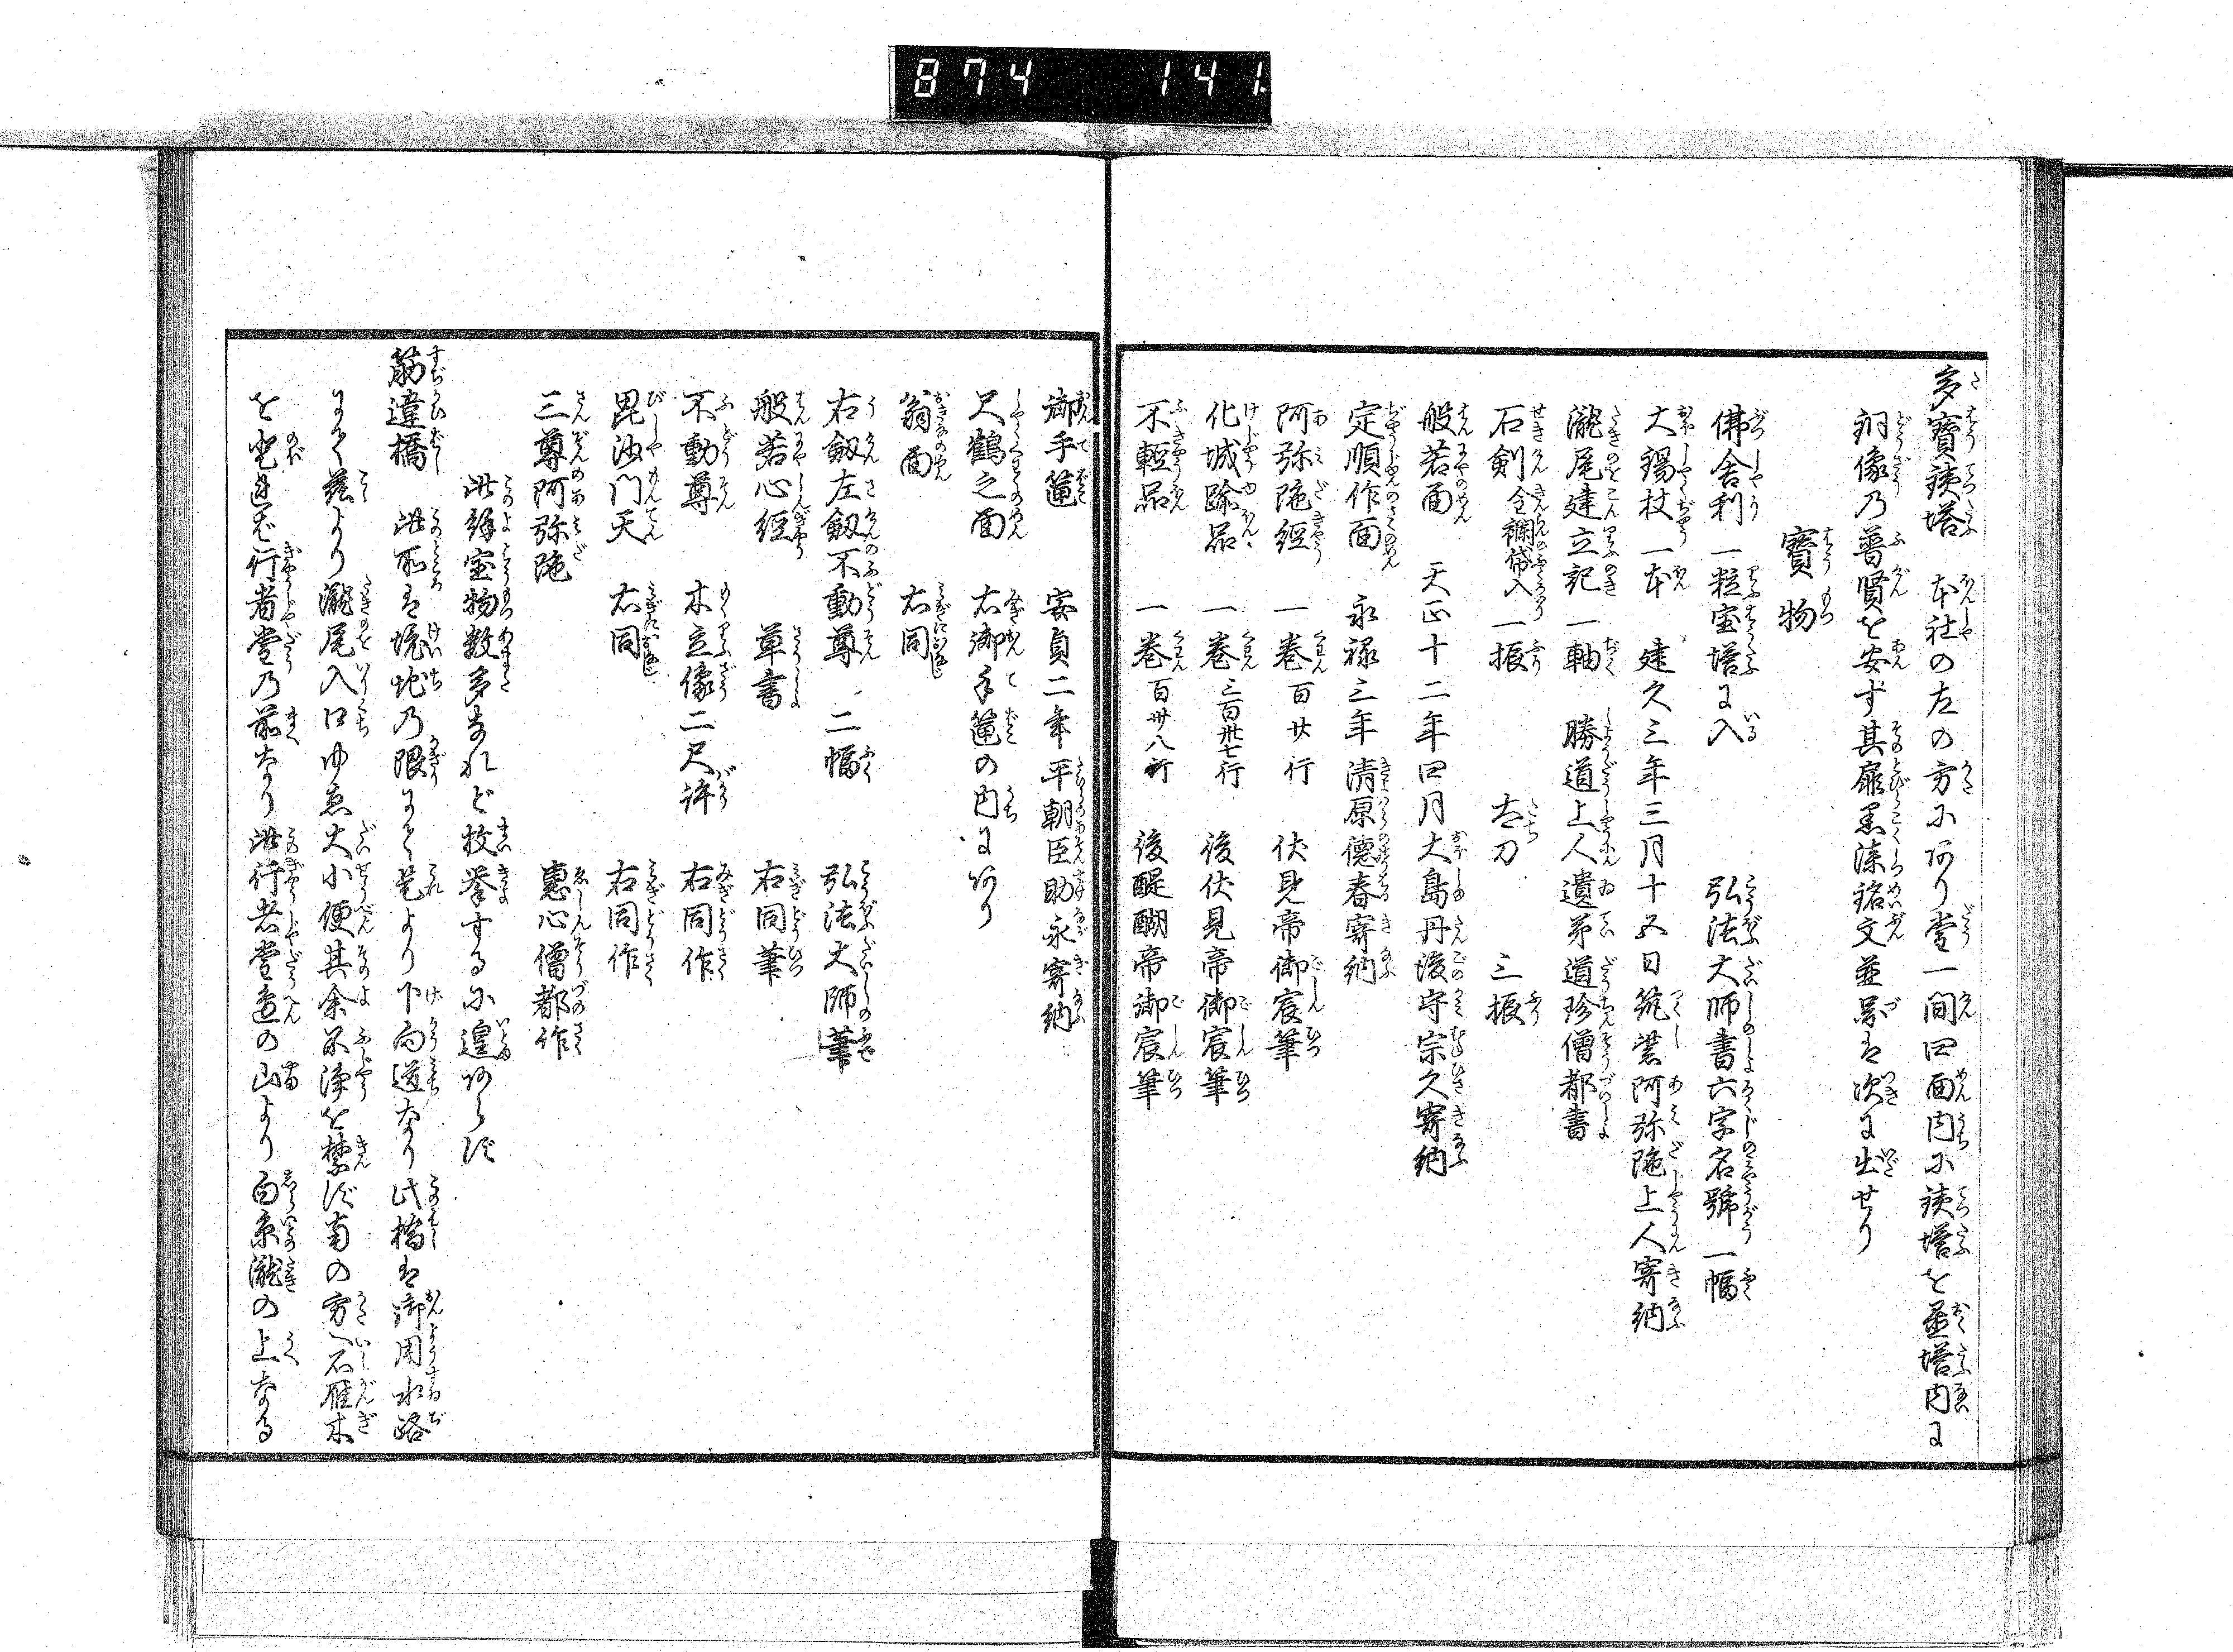 874 141
多寳鉄塔 本社の左の方に在り堂一間四面内に鉄塔を置塔内に
銅像乃普賢を安ず其扉黒漆銘文並図は次に出せり
寳物
佛舎利 一粒宝塔に入 弘法大師書六字名號 一幅
大錫杖 一本 建久三年三月十五日筑紫阿弥陁上人寄納
瀧尾建立記 一軸 勝道上人遺弟道珍僧都書
石剣 金襴袋入 一振 太刀 三振
般若面 天正十二年四月大島丹後守宗久寄納
定順作面 永禄三年清原德春寄納
阿弥陁經 一巻 百廿行 伏見帝御宸筆
化城踰品 一巻 三百卅七行 後伏見帝御宸筆
不輕品 一巻 百卅八行 後醍醐帝御宸筆
御手箱 安貞二年平朝臣助永寄納
尺鶴之面 右御手箱の内に在り
翁面 右同
右劔左劔不動尊 二幅 弘法大師筆
般若心經 草書 右同筆
不動尊 木立像二尺許 右同作
毘沙门天 右同 右同作
三尊阿弥陁 惠心僧都作
此餘宝物数多あれど枚挙するに遑あらず
筋違橋 此所は境地乃限にて是より下向道なり此橋は御用水路
にて茲より瀧尾入口ゆゑ大小便其余不浄を禁ず南の方へ石雁木
を登れば行者堂乃前なり此行者堂邉の山より白糸瀧の上なる